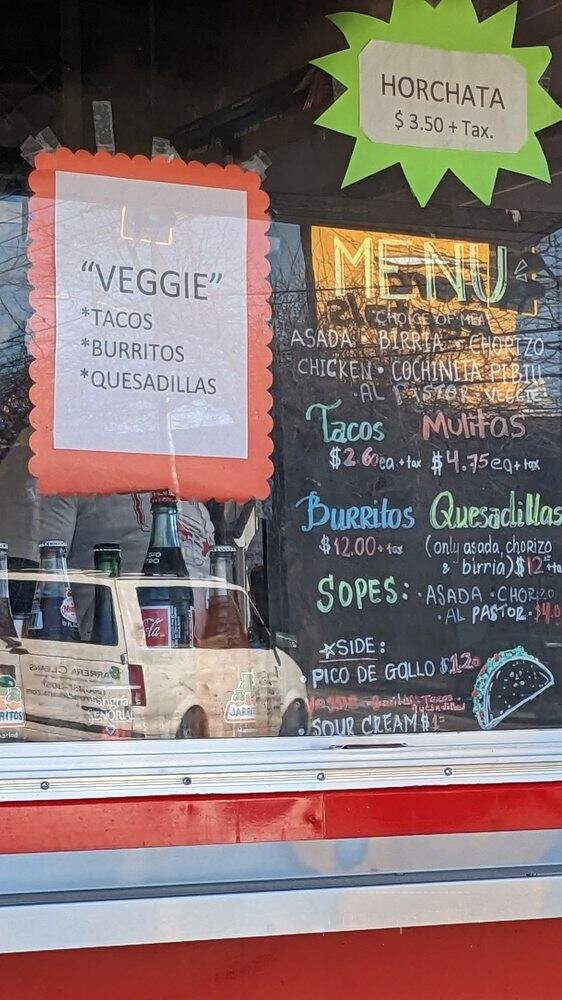 HORCHATA
$3.50 + Tax.
“VEGGIE”
*TACOS
*BURRITOS
*QUESADILLAS
MENU
CHOICE OF MEAT
ASADA • BIRRIA • CHORIZO
CHICKEN • COCHINITA PIBIL
• AL PASTOR VEGGIE
Tacos Mulitas
$2.60ea +tax $4.75ea+tax
Burritos Quesadillas
$12.00+tax (only asada, chorizo
& birria) $12
SOPES: • ASADA • CHORIZO
• AL PASTOR • $4.0
☆SIDE:
• PICO DE GALLO $1.20
VEGGIE - Burritos - Tacos
Quesadillas
• SOUR CREAM $1
Coca-Cola
BARRERA CLEANS
Sangria
SEÑORIAL
JARRITOS